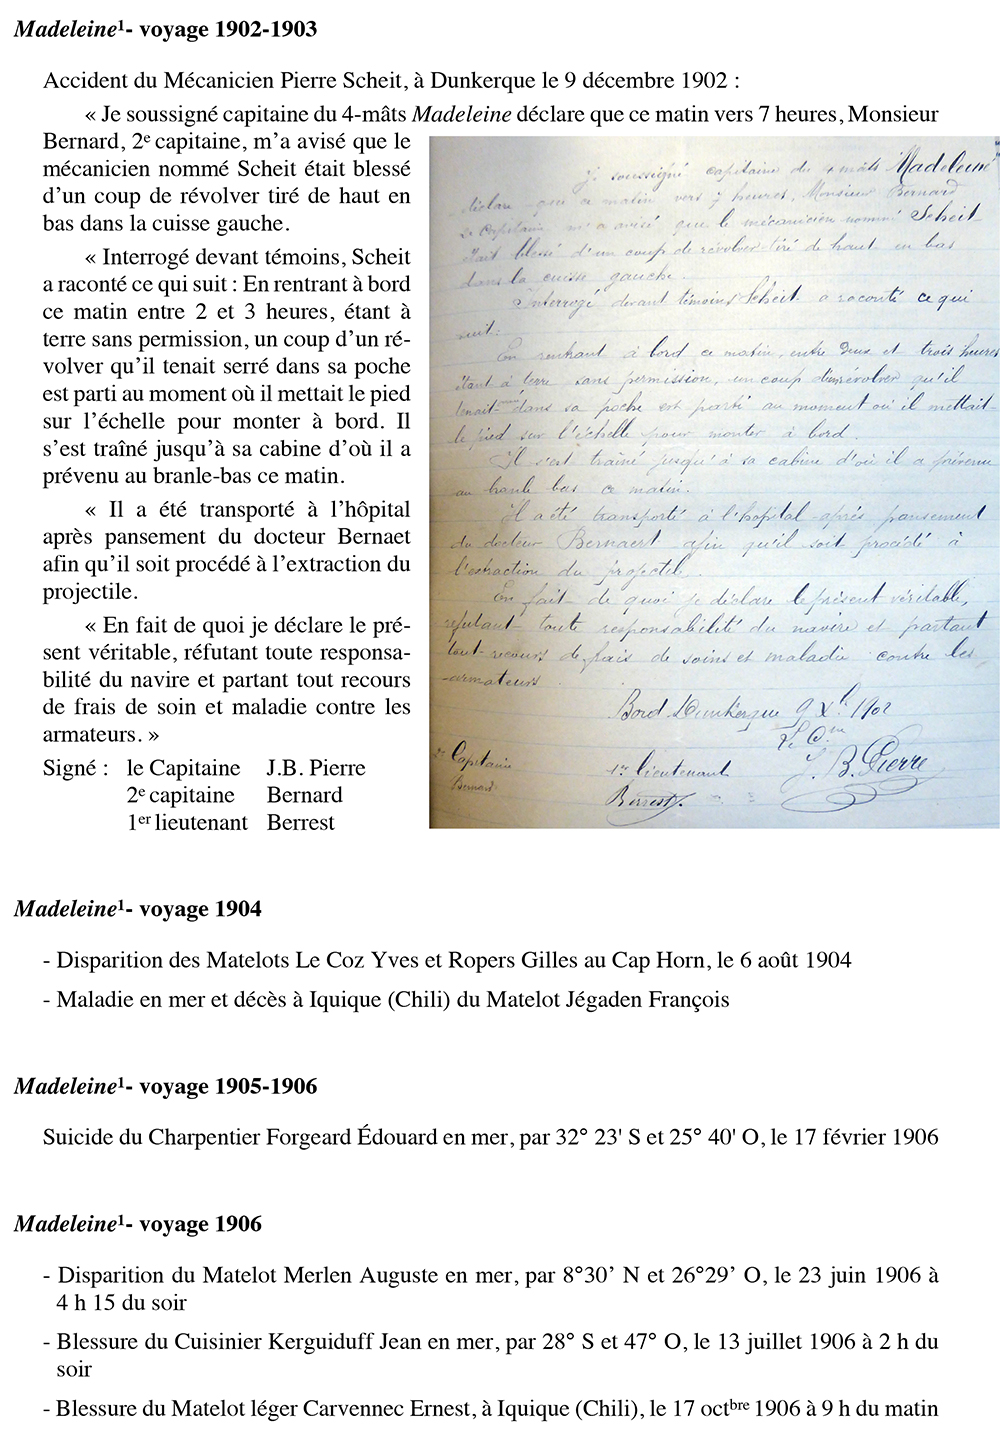 Madeleine¹- voyage 1902-1903
Accident du Mécanicien Pierre Scheit, à Dunkerque le 9 décembre 1902 :
« Je soussigné capitaine du 4-mâts Madeleine déclare que ce matin vers 7 heures, Monsieur
Bernard, 2e capitaine, m’a avisé que le
mécanicien nommé Scheit était blessé
d’un coup de révolver tiré de haut en
bas dans la cuisse gauche.
« Interrogé devant témoins, Scheit
a raconté ce qui suit : En rentrant à bord
ce matin entre 2 et 3 heures, étant à
terre sans permission, un coup d’un ré-
volver qu’il tenait serré dans sa poche
est parti au moment où il mettait le pied
sur l’échelle pour monter à bord. Il
s’est traîné jusqu’à sa cabine d’où il a
prévenu au branle-bas ce matin.
« Il a été transporté à l’hôpital
après pansement du docteur Bernaet
afin qu’il soit procédé à l’extraction du
projectile.
« En fait de quoi je déclare le pré-
sent véritable, réfutant toute responsa-
bilité du navire et partant tout recours
de frais de soin et maladie contre les
armateurs. »
Signé : le Capitaine J.B. Pierre
2e capitaine Bernard
1er lieutenant Berrest
Je soussigné capitaine du 4 mâts Madeleine
déclare que ce matin vers 7 heures, Monsieur Bernard
2e Capitaine m'a avisé que le mécanicien nommé Scheit
était blessé d'un coup de révolver tiré de haut en bas
dans la cuisse gauche.
Interrogé devant témoins Scheit a raconté ce qui
suit:
En rentrant à bord ce matin, entre deux et trois heures
étant à terre sans permission, un coup d'un révolver qu'il
tenait dans sa poche est parti au moment où il mettait
le pied sur l'échelle pour monter à bord.
Il s'est traîné jusqu'à sa cabine d'où il a prévenu
au branle bas ce matin.
Il a été transporté à l'hopital après pansement
du docteur Bernaert afin qu'il soit procédé à
l'extraction du projectil.
En fait de quoi je déclare le présent véritable,
réfutant toute responsabilité du navire et partant
tout recours de frais de soins et maladie contre les
armateurs
Bord Dunkerque 9 Xbre 1902
Le Cne
2e Capitaine 1er lieutenant J. B. Pierre
Bernard Berrest
Madeleine¹- voyage 1904
- Disparition des Matelots Le Coz Yves et Ropers Gilles au Cap Horn, le 6 août 1904
- Maladie en mer et décès à Iquique (Chili) du Matelot Jégaden François
Madeleine¹- voyage 1905-1906
Suicide du Charpentier Forgeard Édouard en mer, par 32° 23' S et 25° 40' O, le 17 février 1906
Madeleine¹- voyage 1906
- Disparition du Matelot Merlen Auguste en mer, par 8°30’ N et 26°29’ O, le 23 juin 1906 à
4 h 15 du soir
- Blessure du Cuisinier Kerguiduff Jean en mer, par 28° S et 47° O, le 13 juillet 1906 à 2 h du
soir
- Blessure du Matelot léger Carvennec Ernest, à Iquique (Chili), le 17 octbre 1906 à 9 h du matin